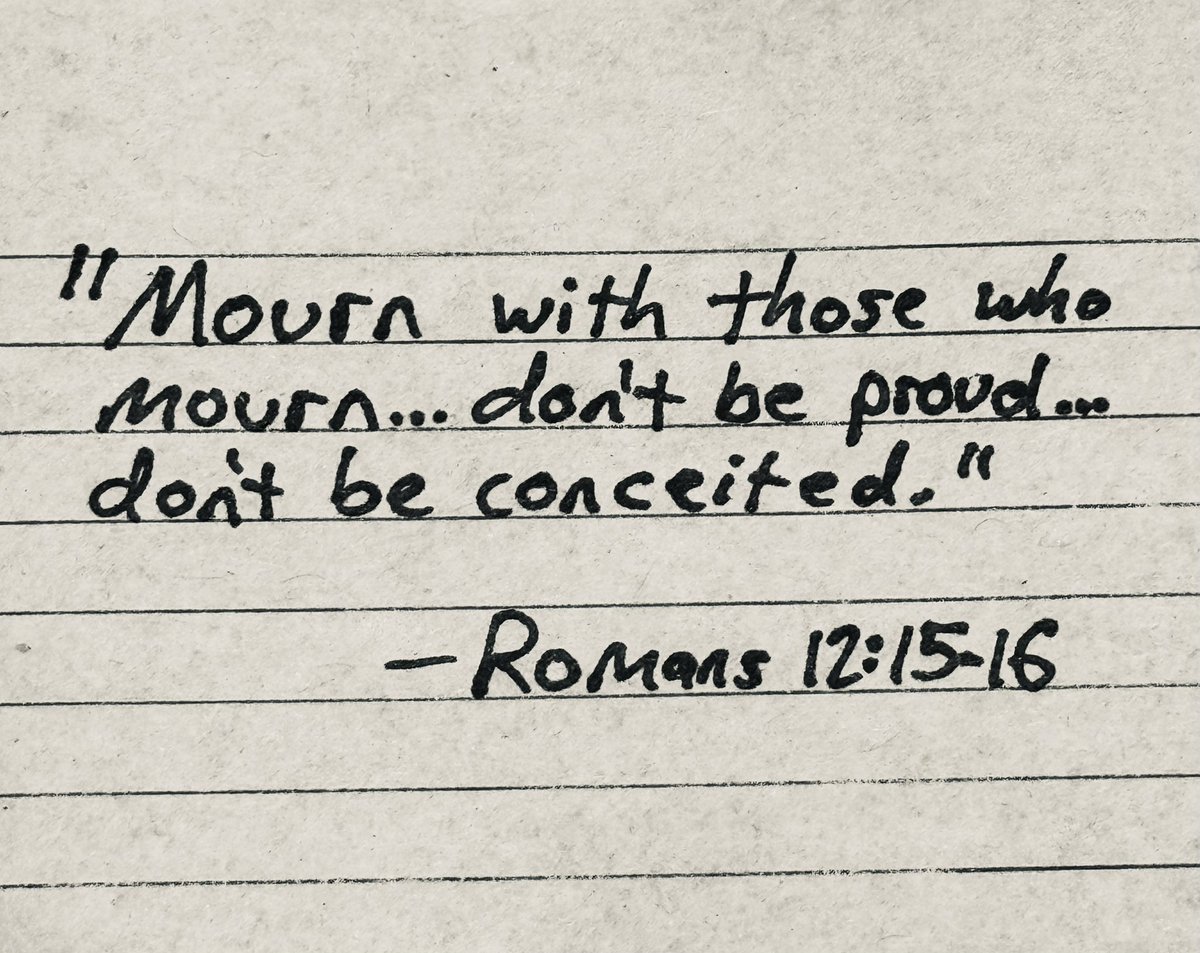 "Mourn with those who
mourn... don't be proud...
don't be conceited."
— Romans 12:15-16